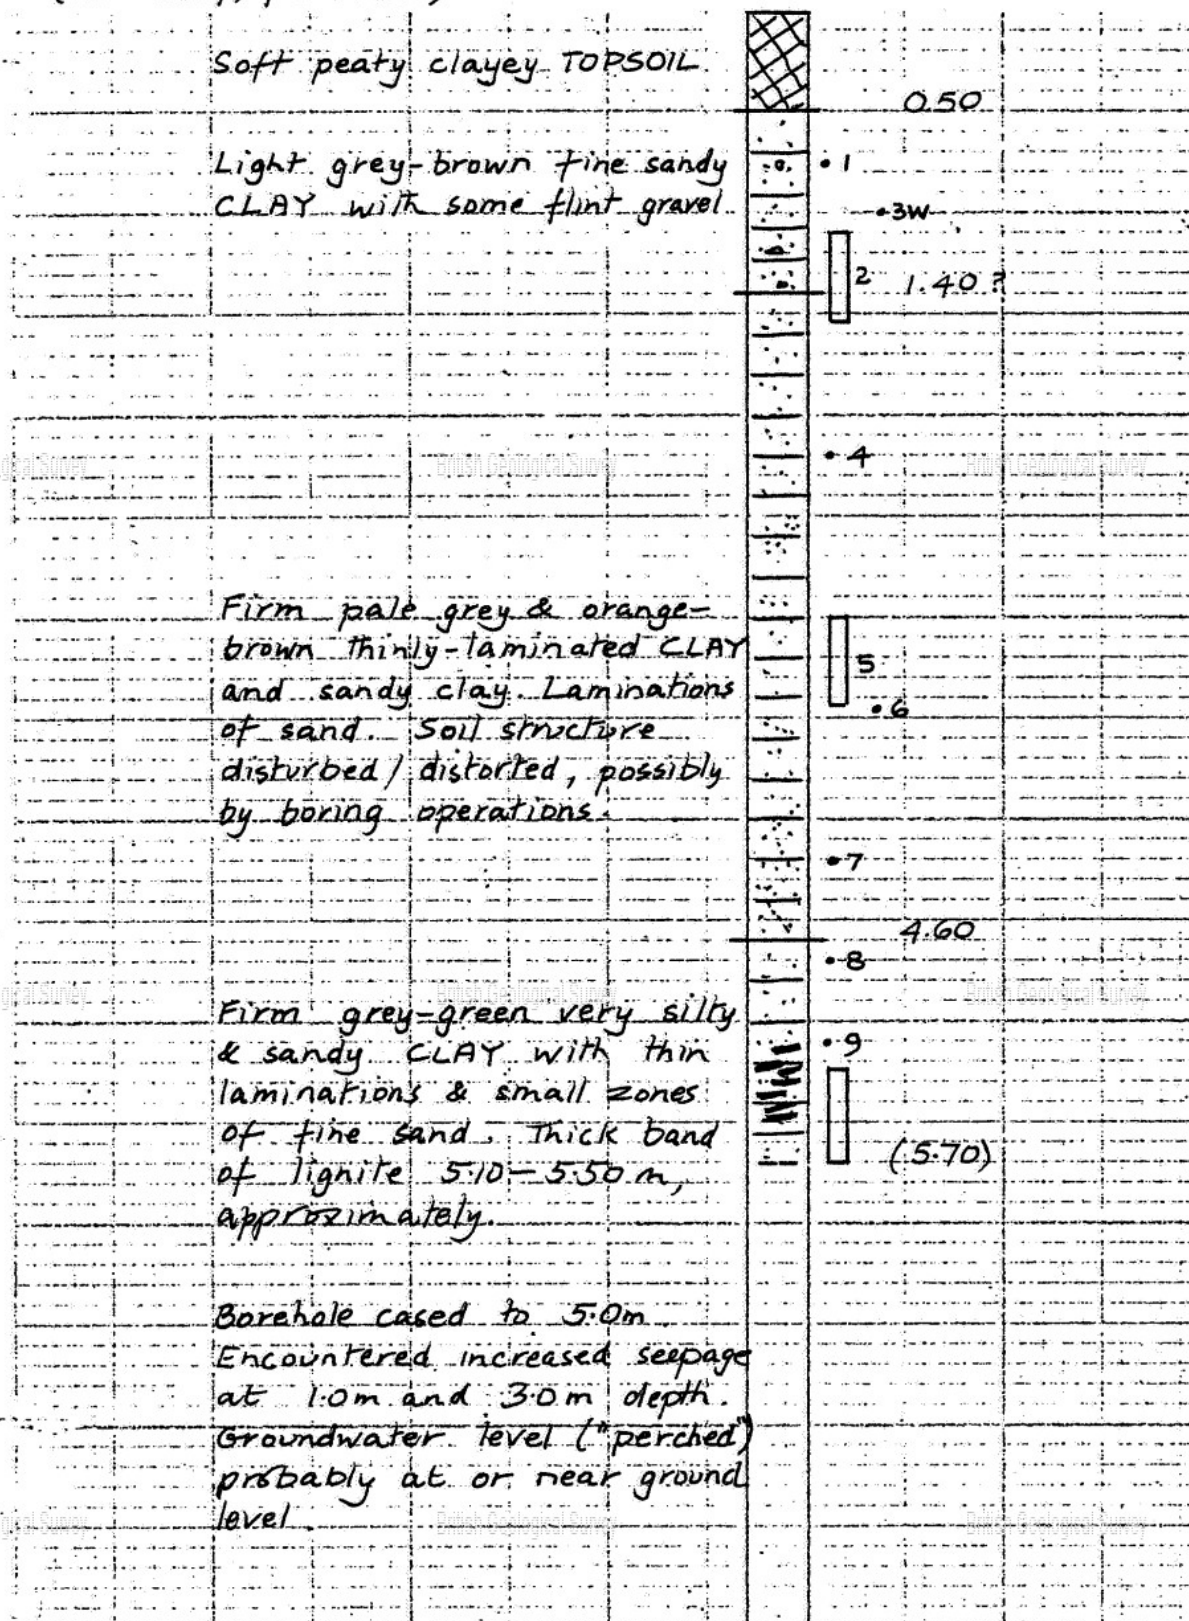 Soft peaty clayey TOPSOIL
0.50
Light grey-brown fine sandy
CLAY with some flint gravel
1
3W
2
1.40 ?
British Geological Survey
4
British Geological Survey
Firm pale grey & orange-
brown thinly-laminated CLAY
and sandy clay. Laminations
of sand. Soil structure
disturbed / distorted, possibly
by boring operations.
5
6
7
4.60
8
British Geological Survey
British Geological Survey
Firm grey-green very silty
& sandy CLAY with thin
laminations & small zones
of fine sand. Thick band
of lignite 5.10 - 5.50 m,
approximately.
9
(5.70)
Borehole cased to 5.0m.
Encountered increased seepage
at 1.0m and 3.0m depth.
Groundwater level ("perched")
probably at or near ground
level
British Geological Survey
British Geological Survey